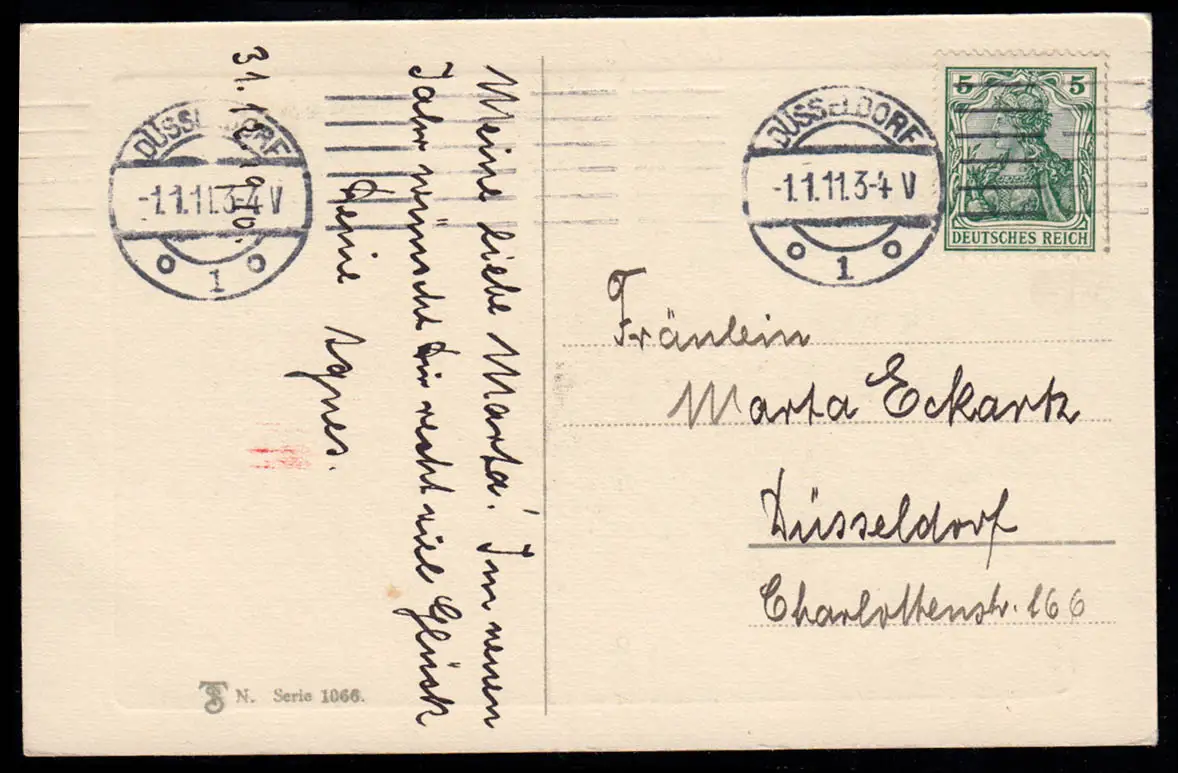 31.12.1910.
Meine liebe Marta! Im neuen
Jahr wünscht dir recht viel Glück
deine Agnes.
DÜSSELDORF
-1.1.11.3-4 V
1
DÜSSELDORF
-1.1.11.3-4 V
1
5 5
DEUTSCHES REICH
Fräulein
Marta Eckartz
Düsseldorf
Charlottenstr. 166
TS N. Serie 1066.